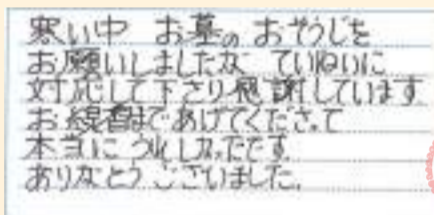 寒い中 お墓の おそうじを
お願いしましたが ていねいに
対応して下さり感謝しています
お線香まであげてくださって
本当に うれしかったです
ありがとう ございました。